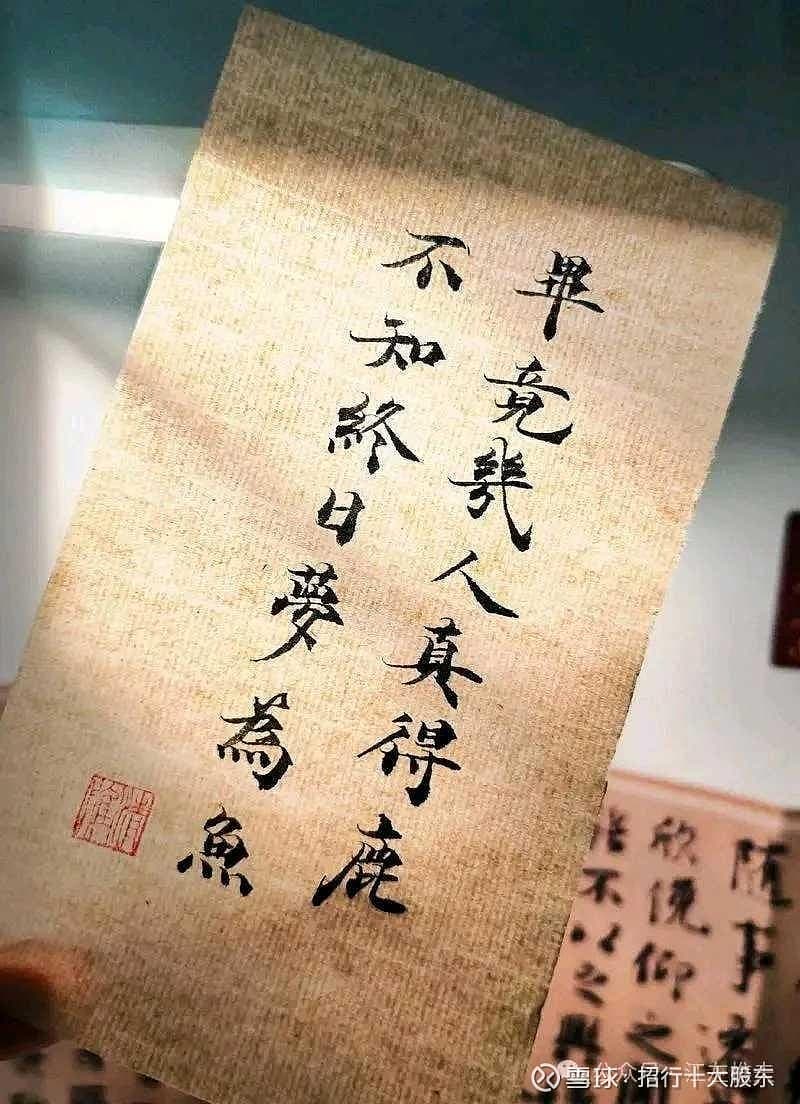 畢竟幾人真得鹿
不知終日夢為魚
隨事
欣俛仰之
能不以之興
雪球：招行千天股东